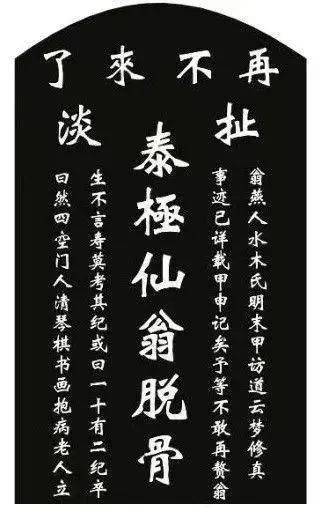 再不來了
扯淡
泰極仙翁脱骨
翁燕人水木氏明末甲访道云梦修真
事迹已详载甲申记矣予等不敢再赘翁
生不言寿莫考其纪或曰一十有二纪卒
曰然四空门人清琴棋书画抱病老人立